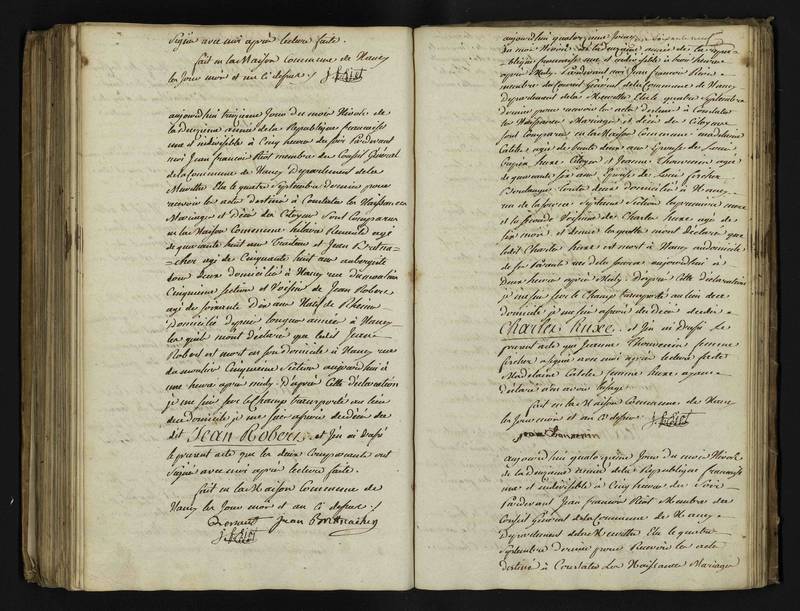 Signé avec moi après lecture faite.
fait en la Maison Commune de Nancy
les Jour mois et an Ci dessus /.
aujourd'huy treizieme Jour du mois Nivose de
la deuxieme année de la Republique francaise
une et indivisible à Cinq heures du soir Pardevant
moi Jean francois Riot membre du Conseil Général
de la Commune de Nancy Departement de la
Meurthe Elu le quatre Septembre dernier pour
recevoir les actes destinés à Constater les Naissances
Mariages et Décès des Citoyens Sont Comparus
en la Maison Commune hilaire agé
de quarante huit ans et Jean
agé de Cinquante huit ans aubergiste
tous deux domiciliés à Nancy rue du moulin
Cinquieme Section et Voisin de Jean Robert
agé de soixante Dix ans Natif de
Domicilié depuis longues années à Nancy
les quels m'ont déclaré que ledit Jean
Robert est mort en son domicile à Nancy rue
du moulin Cinquieme Section aujourd'hui à
une heure après midy. D'après Cette déclaration
je me suis sur le Champ transporté au lieu
du domicile je me suis assuré du décès du
dit Jean Robert et J'en ai Dressé
le present acte que les deux Comparants ont
Signé avec moi après lecture faite.
fait en la Maison Commune de
Nancy les Jour mois et an Ci dessus /.
Jean
aujourd'hui quatorzieme Jour
du mois Nivose de la deuxieme année de la Repu-
-blique francaise une et indivisible à trois heures
après Midy. Pardevant moi Jean francois Riot
membre du Conseil Général de la Commune de Nancy
Departement de la Meurthe Elu le quatre Septembre
dernier pour recevoir les actes destinés à Constater
les Naissances Mariages et décès des Citoyens
sont Comparus en la Maison Commune Madelaine
agée de trente deux ans Epouse de Louis
huxe Citoyen et Jeanne Thouvenin agée
de quarante six ans Epouse de Louis
Boulanger toutes deux domiciliés à Nancy
rue de la Section la premiere mere
et la seconde Voisine de Charles huxe agé de
six mois et demie les quelles m'ont déclaré que
ledit Charles huxe est mort à Nancy au domicile
de ses parents aujourd'hui à
Deux heures après Midy. D'après Cette déclaration
je me suis sur le Champ transporté au lieu du
domicile je me suis assuré du décès dudit
Charles huxe. et J'en ai Dressé le
present acte que Jeanne Thouvenin femme
a signé avec moi après lecture faite
Madelaine femme huxe ayant
déclaré
fait en la Maison Commune de Nancy
les Jour mois et an Ci dessus /.
aujourd'hui quatorzieme Jour du mois Nivose
de la Deuxieme année de la Republique francaise
une et indivisible à Cinq heures du Soir
Pardevant Jean francois Riot Membre du
Conseil Général de la Commune de Nancy
Departement de la Meurthe Elu le quatre
Septembre dernier pour Recevoir les actes
destinés à Constater Les Naissances Mariages